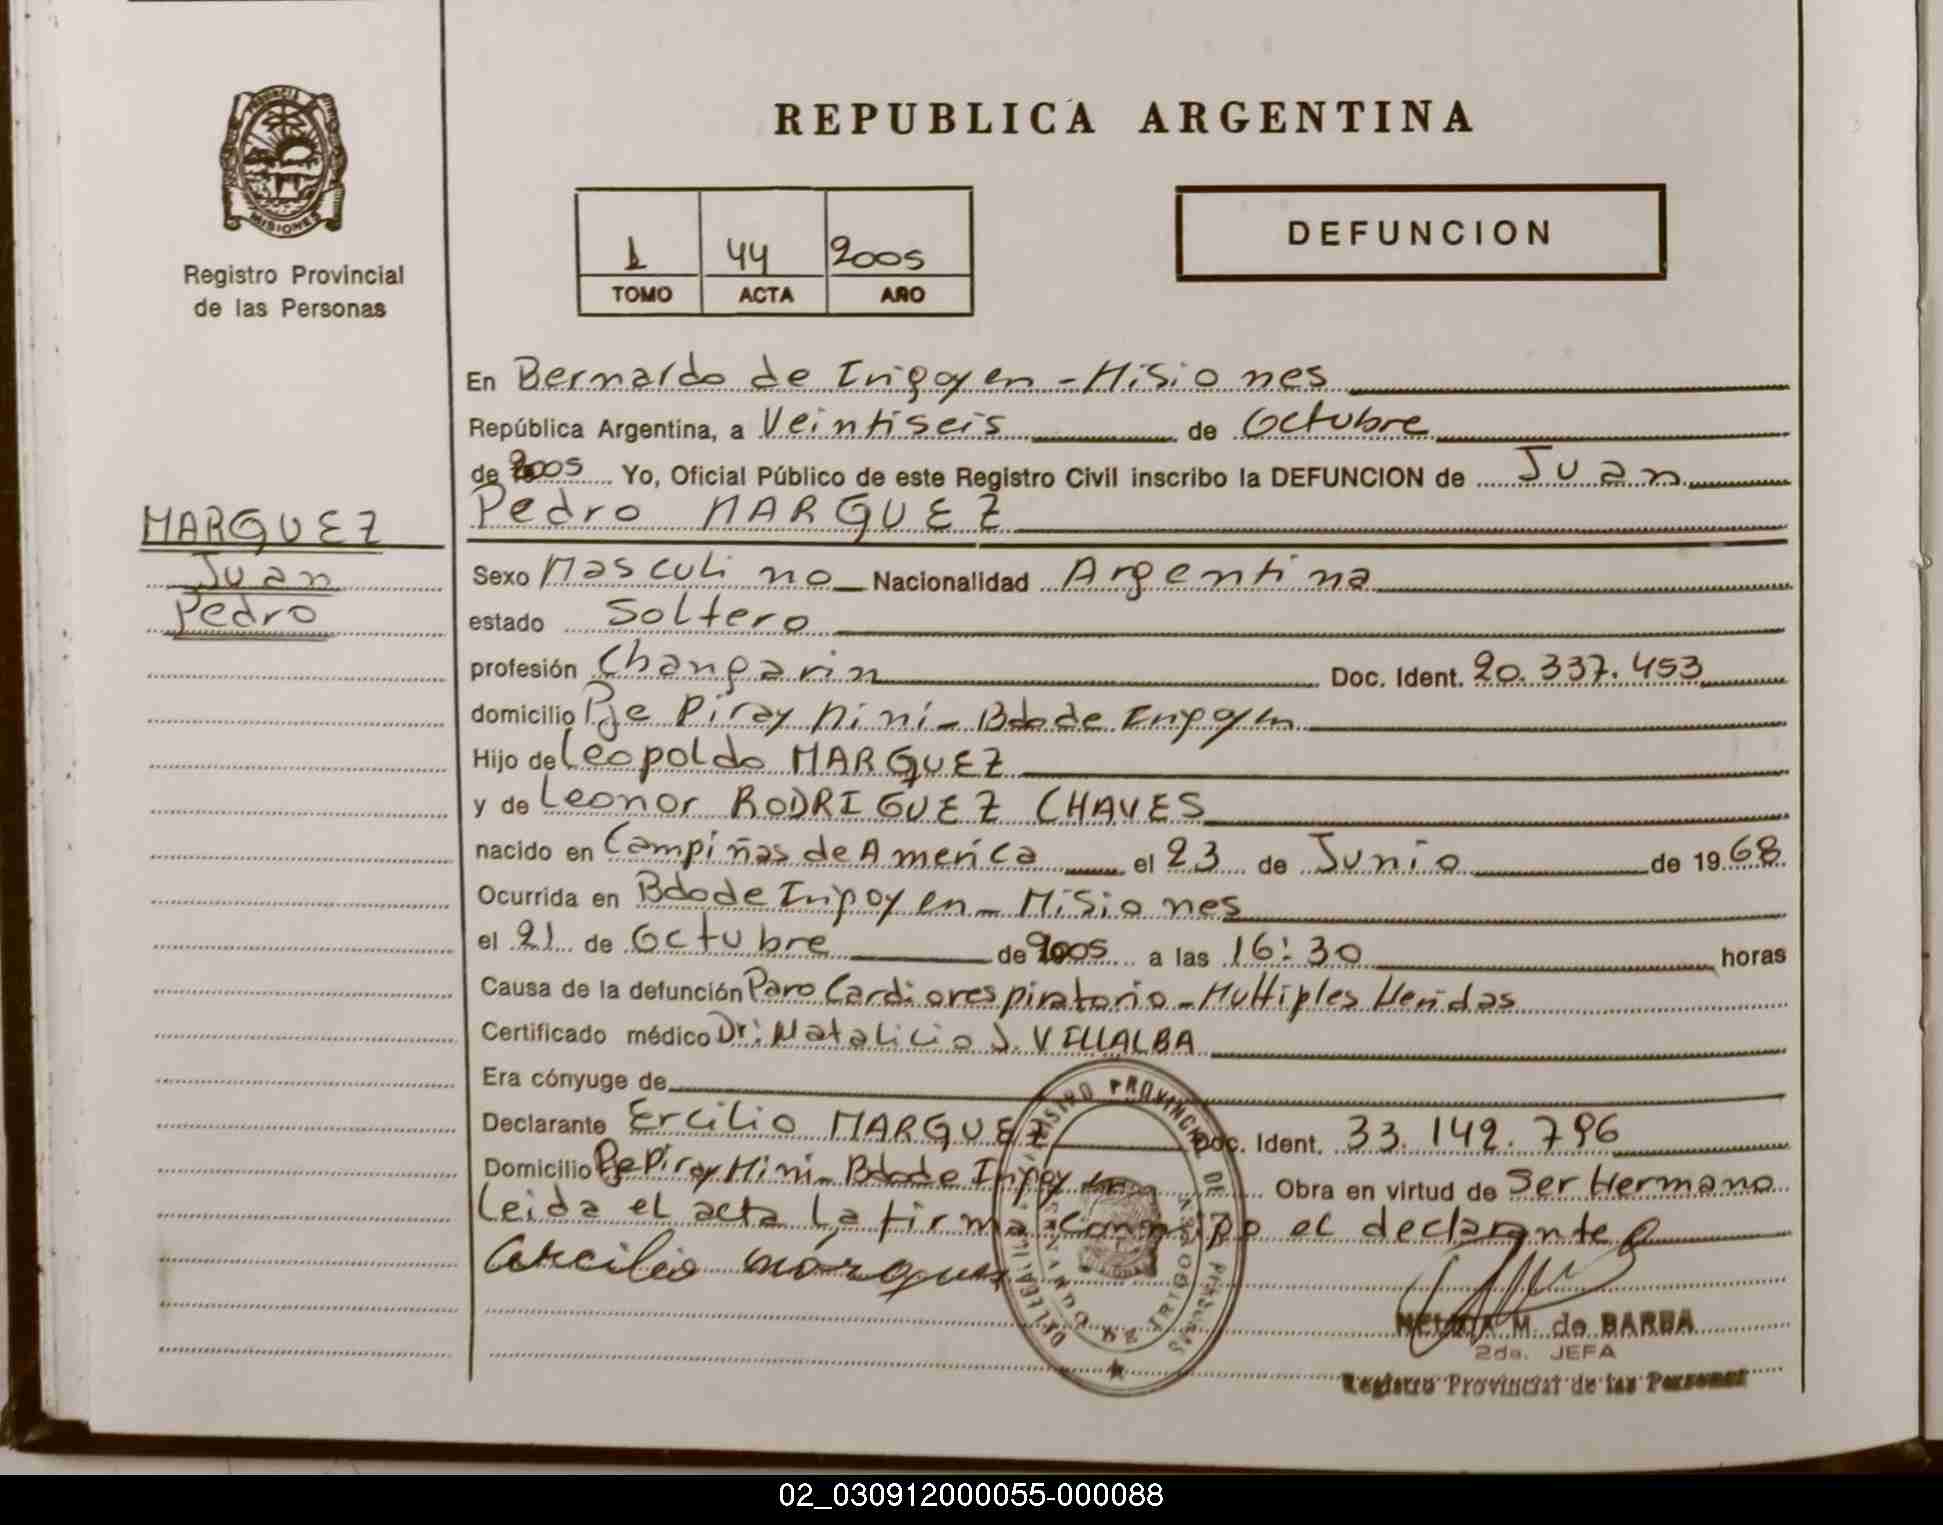 PROVINCIA
MISIONES
Registro Provincial
de las Personas
REPUBLICA ARGENTINA
1 44 2005
TOMO ACTA AÑO
DEFUNCION
En Bernardo de Irigoyen - Misiones
República Argentina, a Veintiseis de Octubre
de 2005 Yo, Oficial Público de este Registro Civil inscribo la DEFUNCION de Juan
Pedro MARQUEZ
MARQUEZ
Juan
Pedro
Sexo Masculino Nacionalidad Argentina
estado Soltero
profesión Changarin Doc. Ident. 20.337.453
domicilio Pje Piray Mini - Bdo de Irigoyen
Hijo de Leopoldo MARQUEZ
y de Leonor RODRIGUEZ CHAVES
nacido en Campiñas de America el 23 de Junio de 1968
Ocurrida en Bdo de Irigoyen - Misiones
el 21 de Octubre de 2005 a las 16:30 horas
Causa de la defunción Paro Cardiorespiratorio - Multiples Heridas
Certificado médico Dr: Natalicio J. VILLALBA
Era cónyuge de
Declarante Ercilio MARQUEZ Doc. Ident. 33.149.796
Domicilio Pje Piray Mini - Bdo de Irigoyen Obra en virtud de Ser Hermano
Leida el acta la firma conmigo el declarante
Arcilio marques
M. de BARBA
2da. JEFA
Registro Provincial de las Personas
02_030912000055-000088